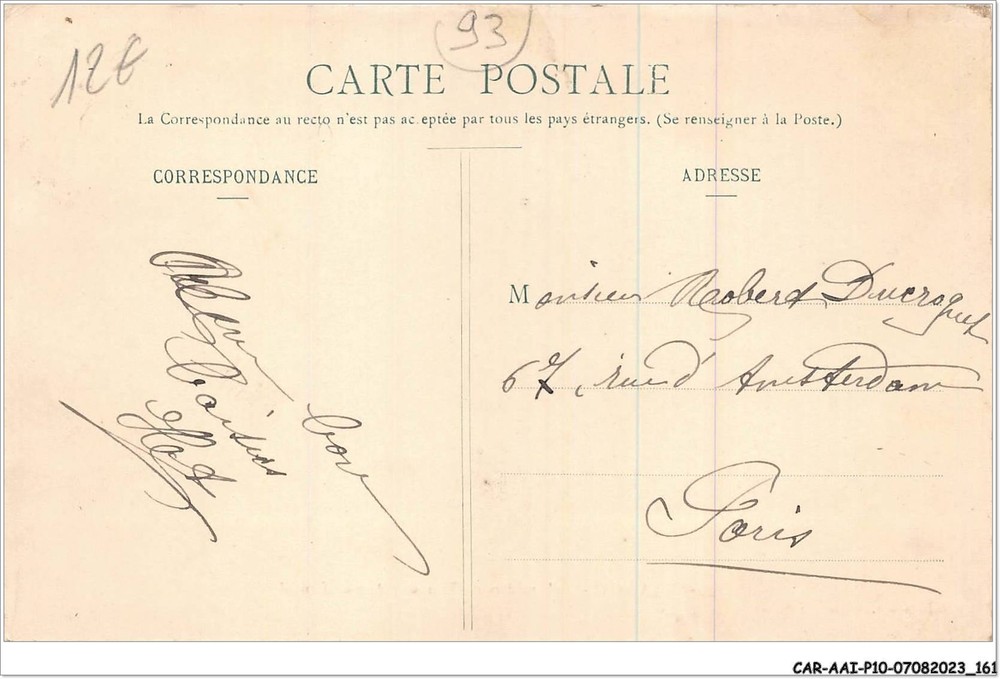 12€
93
CARTE POSTALE
La Correspondance au recto n'est pas acceptée par tous les pays étrangers. (Se renseigner à la Poste.)
CORRESPONDANCE
ADRESSE
Monsieur Robert Ducroquet
67, rue d'Amsterdam
Paris
Bon
CAR-AAI-P10-07082023_161